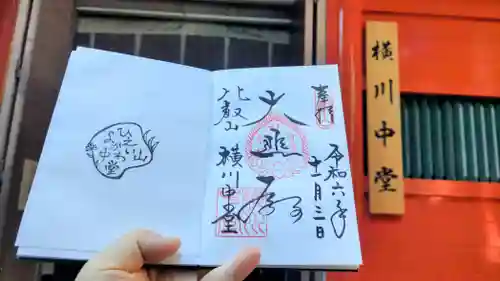 横川中堂
奉拝
令和六年
十一月三日
大進房
比叡山 横川中堂
ひえい山
よかわ
中堂